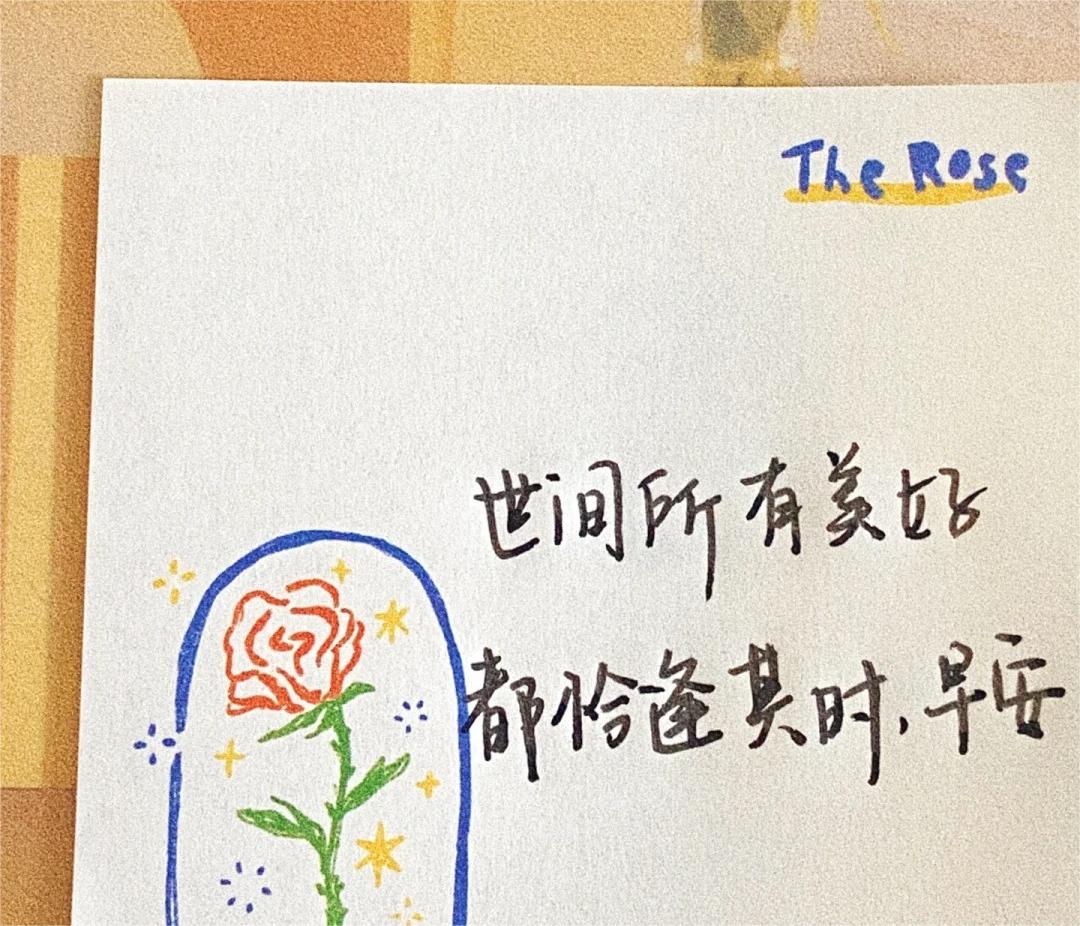 The Rose
世间所有美好
都恰逢其时,早安